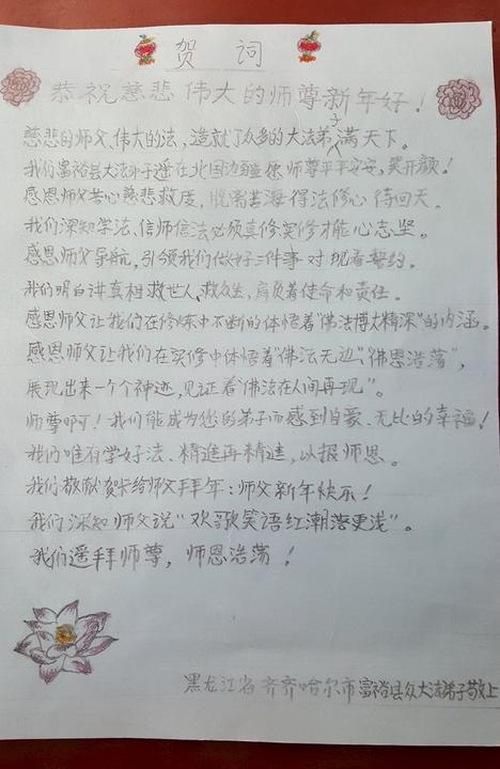 贺词
恭祝慈悲伟大的师尊新年好!
慈悲的师父、伟大的法，造就了众多的大法弟子满天下。
我们富裕县大法弟子遥在北国边疆愿师尊平平安安，笑开颜!
感恩师父苦心慈悲救度，脱离苦海得法修心待回天。
我们深知学法、信师信法必须真修实修才能心志坚。
感恩师父导航，引领我们做好三件事对现着誓约。
我们明白讲真相救世人、救众生，肩负着使命和责任。
感恩师父让我们在修炼中不断的体悟着“佛法博大精深”的内涵。
感恩师父让我们在实修中体悟着“佛法无边”，“佛恩浩荡”，
展现出来一个个神迹，见证着“佛法在人间再现”。
师尊啊! 我们能成为您的弟子而感到自豪、无比的幸福!
我们唯有学好法、精進再精進，以报师恩。
我们敬献贺卡给师父拜年：师父新年快乐!
我们深知师父说“欢歌笑语红潮落更浅”。
我们遥拜师尊，师恩浩荡!
黑龙江省齐齐哈尔市富裕县众大法弟子敬上